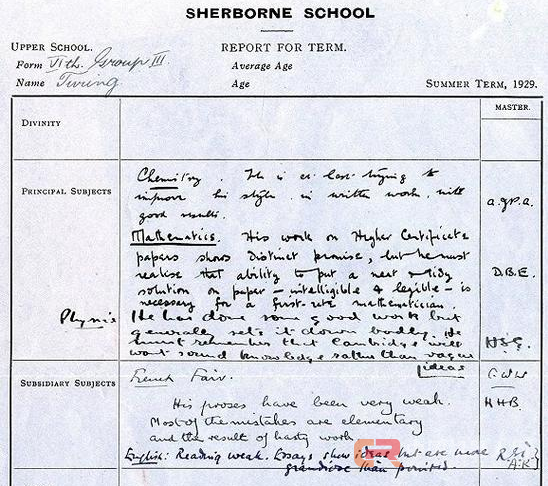 SHERBORNE SCHOOL
UPPER SCHOOL. REPORT FOR TERM.
Form VIth. Group III. Average Age
Name Turing. Age SUMMER TERM, 1929.
MASTER.
DIVINITY
PRINCIPAL SUBJECTS
Chemistry. He is at last trying to
improve his style in written work, with
good results.
Mathematics. His work on Higher Certificate
papers shows distinct promise, but he must
realise that ability to put a neat & tidy
solution on paper – intelligible & legible – is
necessary for a first-rate mathematician.
D.B.E.
Physics He has done some good work but
generally sets it down badly. He
must remember that Cambridge will
want sound knowledge rather than vague
ideas
SUBSIDIARY SUBJECTS French Fair.
His proses have been very weak.
Most of the mistakes are elementary
and the result of hasty work.
H.H.B.
English: Reading weak. Essays show ideas but are more
grandiose than